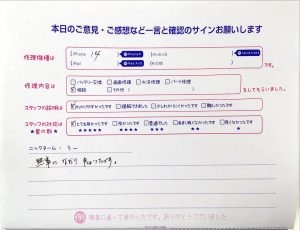 本日のご意見・ご感想など一言と確認のサインお願いします
修理機種は
iPhone 14
Android
iPad
その他
です。
修理内容は
バッテリー交換 画面修理 水没修理 パーツ修理
相談 その他
をしてもらいました。
スタッフの説明は
わかりやすかったです 理解できました 少しわかりにくかった 難しかったです
スタッフの対応は
★星の数★
とても良かったです 良かったです 普通でした あまり良くなかったです 良くなかったです
★★★★★ ★★★★ ★★★ ★★ ★
ニックネーム：
無事に なおり よかったです。
無事に直って良かったです。ありがとうございました